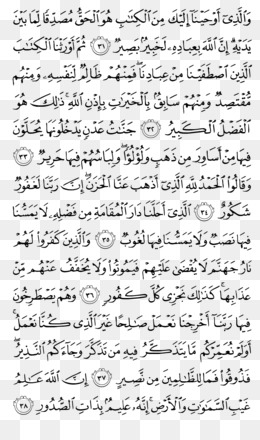 وَالَّذِي أَوْحَيْنَا إِلَيْكَ مِنَ الْكِتَابِ هُوَ الْحَقُّ مُصَدِّقًا لِمَا بَيْنَ
يَدَيْهِ إِنَّ اللَّهَ بِعِبَادِهِ لَخَبِيرٌ بَصِيرٌ ٣١ ثُمَّ أَوْرَثْنَا الْكِتَابَ
الَّذِينَ اصْطَفَيْنَا مِنْ عِبَادِنَا فَمِنْهُمْ ظَالِمٌ لِنَفْسِهِ وَمِنْهُمْ
مُقْتَصِدٌ وَمِنْهُمْ سَابِقٌ بِالْخَيْرَاتِ بِإِذْنِ اللَّهِ ذَٰلِكَ هُوَ
الْفَضْلُ الْكَبِيرُ ٣٢ جَنَّاتُ عَدْنٍ يَدْخُلُونَهَا يُحَلَّوْنَ
فِيهَا مِنْ أَسَاوِرَ مِنْ ذَهَبٍ وَلُؤْلُؤًا وَلِبَاسُهُمْ فِيهَا حَرِيرٌ ٣٣
وَقَالُوا الْحَمْدُ لِلَّهِ الَّذِي أَذْهَبَ عَنَّا الْحَزَنَ إِنَّ رَبَّنَا لَغَفُورٌ
شَكُورٌ ٣٤ الَّذِي أَحَلَّنَا دَارَ الْمُقَامَةِ مِنْ فَضْلِهِ لَا يَمَسُّنَا
فِيهَا نَصَبٌ وَلَا يَمَسُّنَا فِيهَا لُغُوبٌ ٣٥ وَالَّذِينَ كَفَرُوا لَهُمْ
نَارُ جَهَنَّمَ لَا يُقْضَىٰ عَلَيْهِمْ فَيَمُوتُوا وَلَا يُخَفَّفُ عَنْهُمْ مِنْ
عَذَابِهَا كَذَٰلِكَ نَجْزِي كُلَّ كَفُورٍ ٣٦ وَهُمْ يَصْطَرِخُونَ
فِيهَا رَبَّنَا أَخْرِجْنَا نَعْمَلْ صَالِحًا غَيْرَ الَّذِي كُنَّا نَعْمَلُ
أَوَلَمْ نُعَمِّرْكُمْ مَا يَتَذَكَّرُ فِيهِ مَنْ تَذَكَّرَ وَجَاءَكُمُ النَّذِيرُ
فَذُوقُوا فَمَا لِلظَّالِمِينَ مِنْ نَصِيرٍ ٣٧ إِنَّ اللَّهَ عَالِمُ
غَيْبِ السَّمَاوَاتِ وَالْأَرْضِ إِنَّهُ عَلِيمٌ بِذَاتِ الصُّدُورِ ٣٨